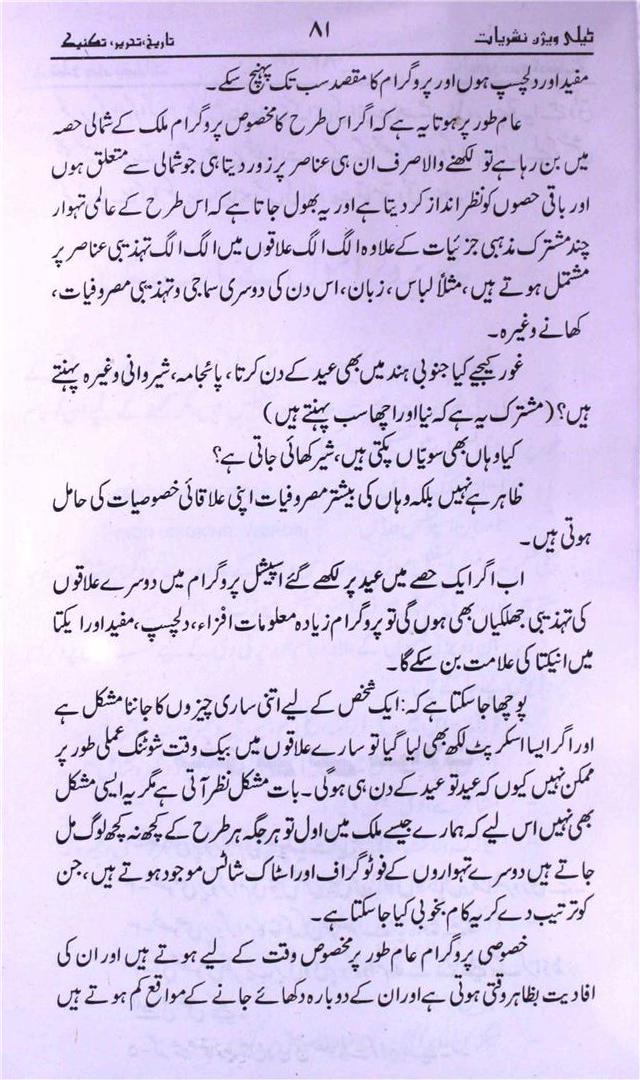 ٹیلی ویژن نشریات ۸۱ تاریخ، تحریر، تکنیک
مفید اور دلچسپ ہوں اور پروگرام کا مقصد سب تک پہنچ سکے۔
عام طور پر ہوتا یہ ہے کہ اگر اس طرح کا مخصوص پروگرام ملک کے شمالی حصہ
میں بن رہا ہے تو لکھنے والا صرف ان ہی عناصر پر زور دیتا ہی جو شمالی سے متعلق ہوں
اور باقی حصوں کو نظر انداز کر دیتا ہے اور یہ بھول جاتا ہے کہ اس طرح کے عالمی تہوار
چند مشترک مذہبی جزئیات کے علاوہ الگ الگ علاقوں میں الگ الگ تہذیبی عناصر پر
مشتمل ہوتے ہیں، مثلاً لباس، زبان، اس دن کی دوسری سماجی و تہذیبی مصروفیات،
کھانے وغیرہ۔
غور کیجیے کیا جنوبی ہند میں بھی عید کے دن کرتا، پائجامہ، شیروانی وغیرہ پہنتے
ہیں؟ (مشترک یہ ہے کہ نیا اور اچھا سب پہنتے ہیں)
کیا وہاں بھی سویّاں پکتی ہیں، شیر کھائی جاتی ہے؟
ظاہر ہے نہیں بلکہ وہاں کی بیشتر مصروفیات اپنی علاقائی خصوصیات کی حامل
ہوتی ہیں۔
اب اگر ایک حصے میں عید پر لکھے گئے اسپیشل پروگرام میں دوسرے علاقوں
کی تہذیبی جھلکیاں بھی ہوں گی تو پروگرام زیادہ معلومات افزاء، دلچسپ، مفید اور ایکتا
میں انیکتا کی علامت بن سکے گا۔
پوچھا جا سکتا ہے کہ: ایک شخص کے لیے اتنی ساری چیزوں کا جاننا مشکل ہے
اور اگر ایسا اسکرپٹ لکھ بھی لیا گیا تو سارے علاقوں میں بیک وقت شوٹنگ عملی طور پر
ممکن نہیں کیوں کہ عید تو عید کے دن ہی ہوگی۔ بات مشکل نظر آتی ہے مگر یہ ایسی مشکل
بھی نہیں اس لیے کہ ہمارے جیسے ملک میں اول تو ہر جگہ ہر طرح کے کچھ نہ کچھ لوگ مل
جاتے ہیں دوسرے تہواروں کے فوٹو گراف اور اسٹاک شاٹس موجود ہوتے ہیں، جن
کو ترتیب دے کر یہ کام بخوبی کیا جا سکتا ہے۔
خصوصی پروگرام عام طور پر مخصوص وقت کے لیے ہوتے ہیں اور ان کی
افادیت بظاہر وقتی ہوتی ہے اور ان کے دوبارہ دکھائے جانے کے مواقع کم ہوتے ہیں